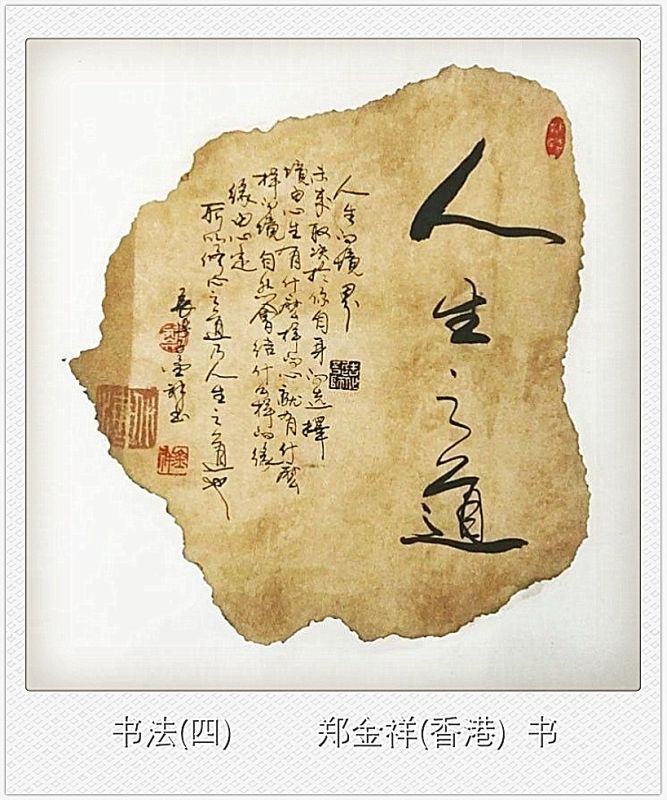 人生之道
人生的境界
未来取决於你自身的选擇
境由心生有什麼样的心就有什麼
样的境自然會结什么样的缘
缘由心定
所以修心之道乃人生之道也
金祥书
金祥
书法(四) 郑金祥(香港) 书